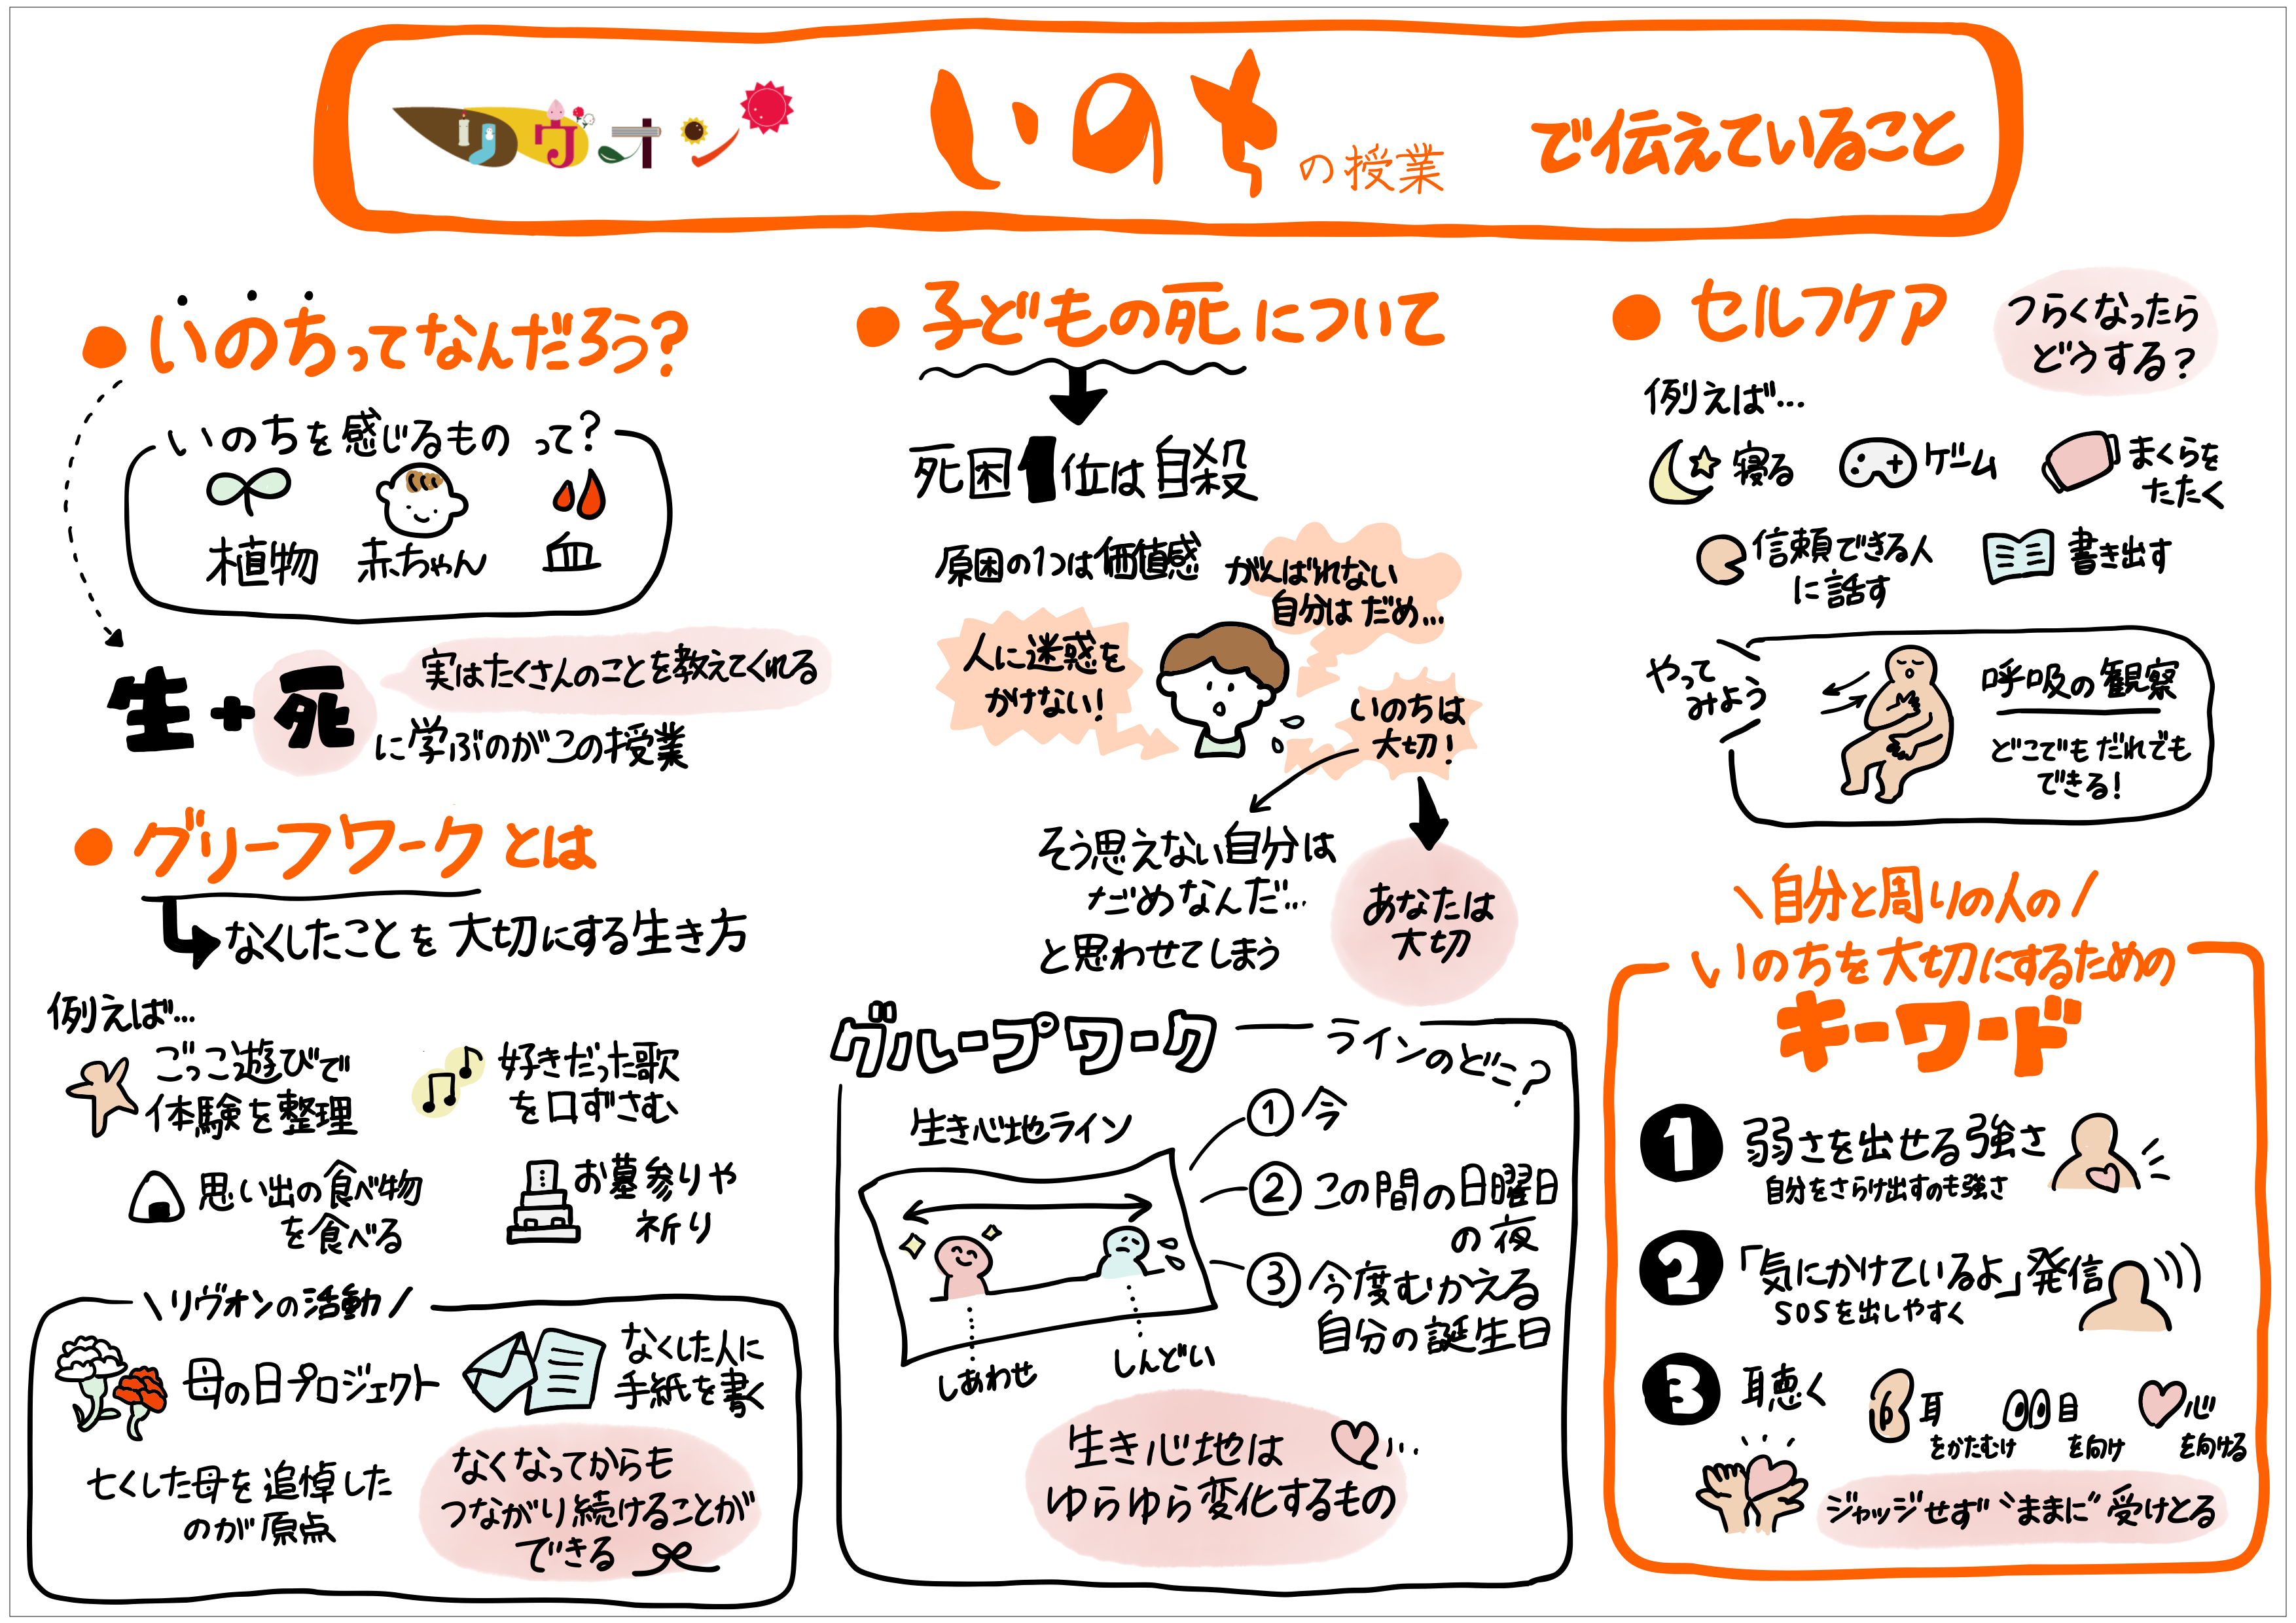 リヴオン
いのちの授業
で伝えていること
いのちってなんだろう?
いのちを感じるものって?
植物
赤ちゃん
血
生+死
実はたくさんのことを教えてくれる
に学ぶのがこの授業
グリーフワークとは
なくしたことを大切にする生き方
例えば…
ごっこ遊びで
体験を整理
好きだった歌
を口ずさむ
思い出の食べ物
を食べる
お墓参りや
祈り
\リヴオンの活動/
母の日プロジェクト
なくした人に
手紙を書く
亡くした母を追悼した
のが原点
なくなってからも
つながり続けることが
できる
子どもの死について
死因1位は自殺
原因の1つは価値感
がんばれない
自分はだめ…
人に迷惑を
かけない!
いのちは
大切!
そう思えない自分は
だめなんだ…
と思わせてしまう
あなたは
大切
グループワーク
ラインのどこ?
生き心地ライン
しあわせ
しんどい
①今
②この間の日曜日
の夜
③今度むかえる
自分の誕生日
生き心地は
ゆらゆら変化するもの
セルフケア
つらくなったら
どうする?
例えば…
寝る
ゲーム
まくらを
たたく
信頼できる人
に話す
書き出す
やって
みよう
呼吸の観察
どこでもだれでも
できる!
\自分と周りの人の/
いのちを大切にするための
キーワード
1 弱さを出せる強さ
自分をさらけ出すのも強さ
2 「気にかけているよ」発信
SOSを出しやすく
3 聴く
耳
をかたむけ
目
を向け
心
を向ける
ジャッジせず"ままに"受けとる